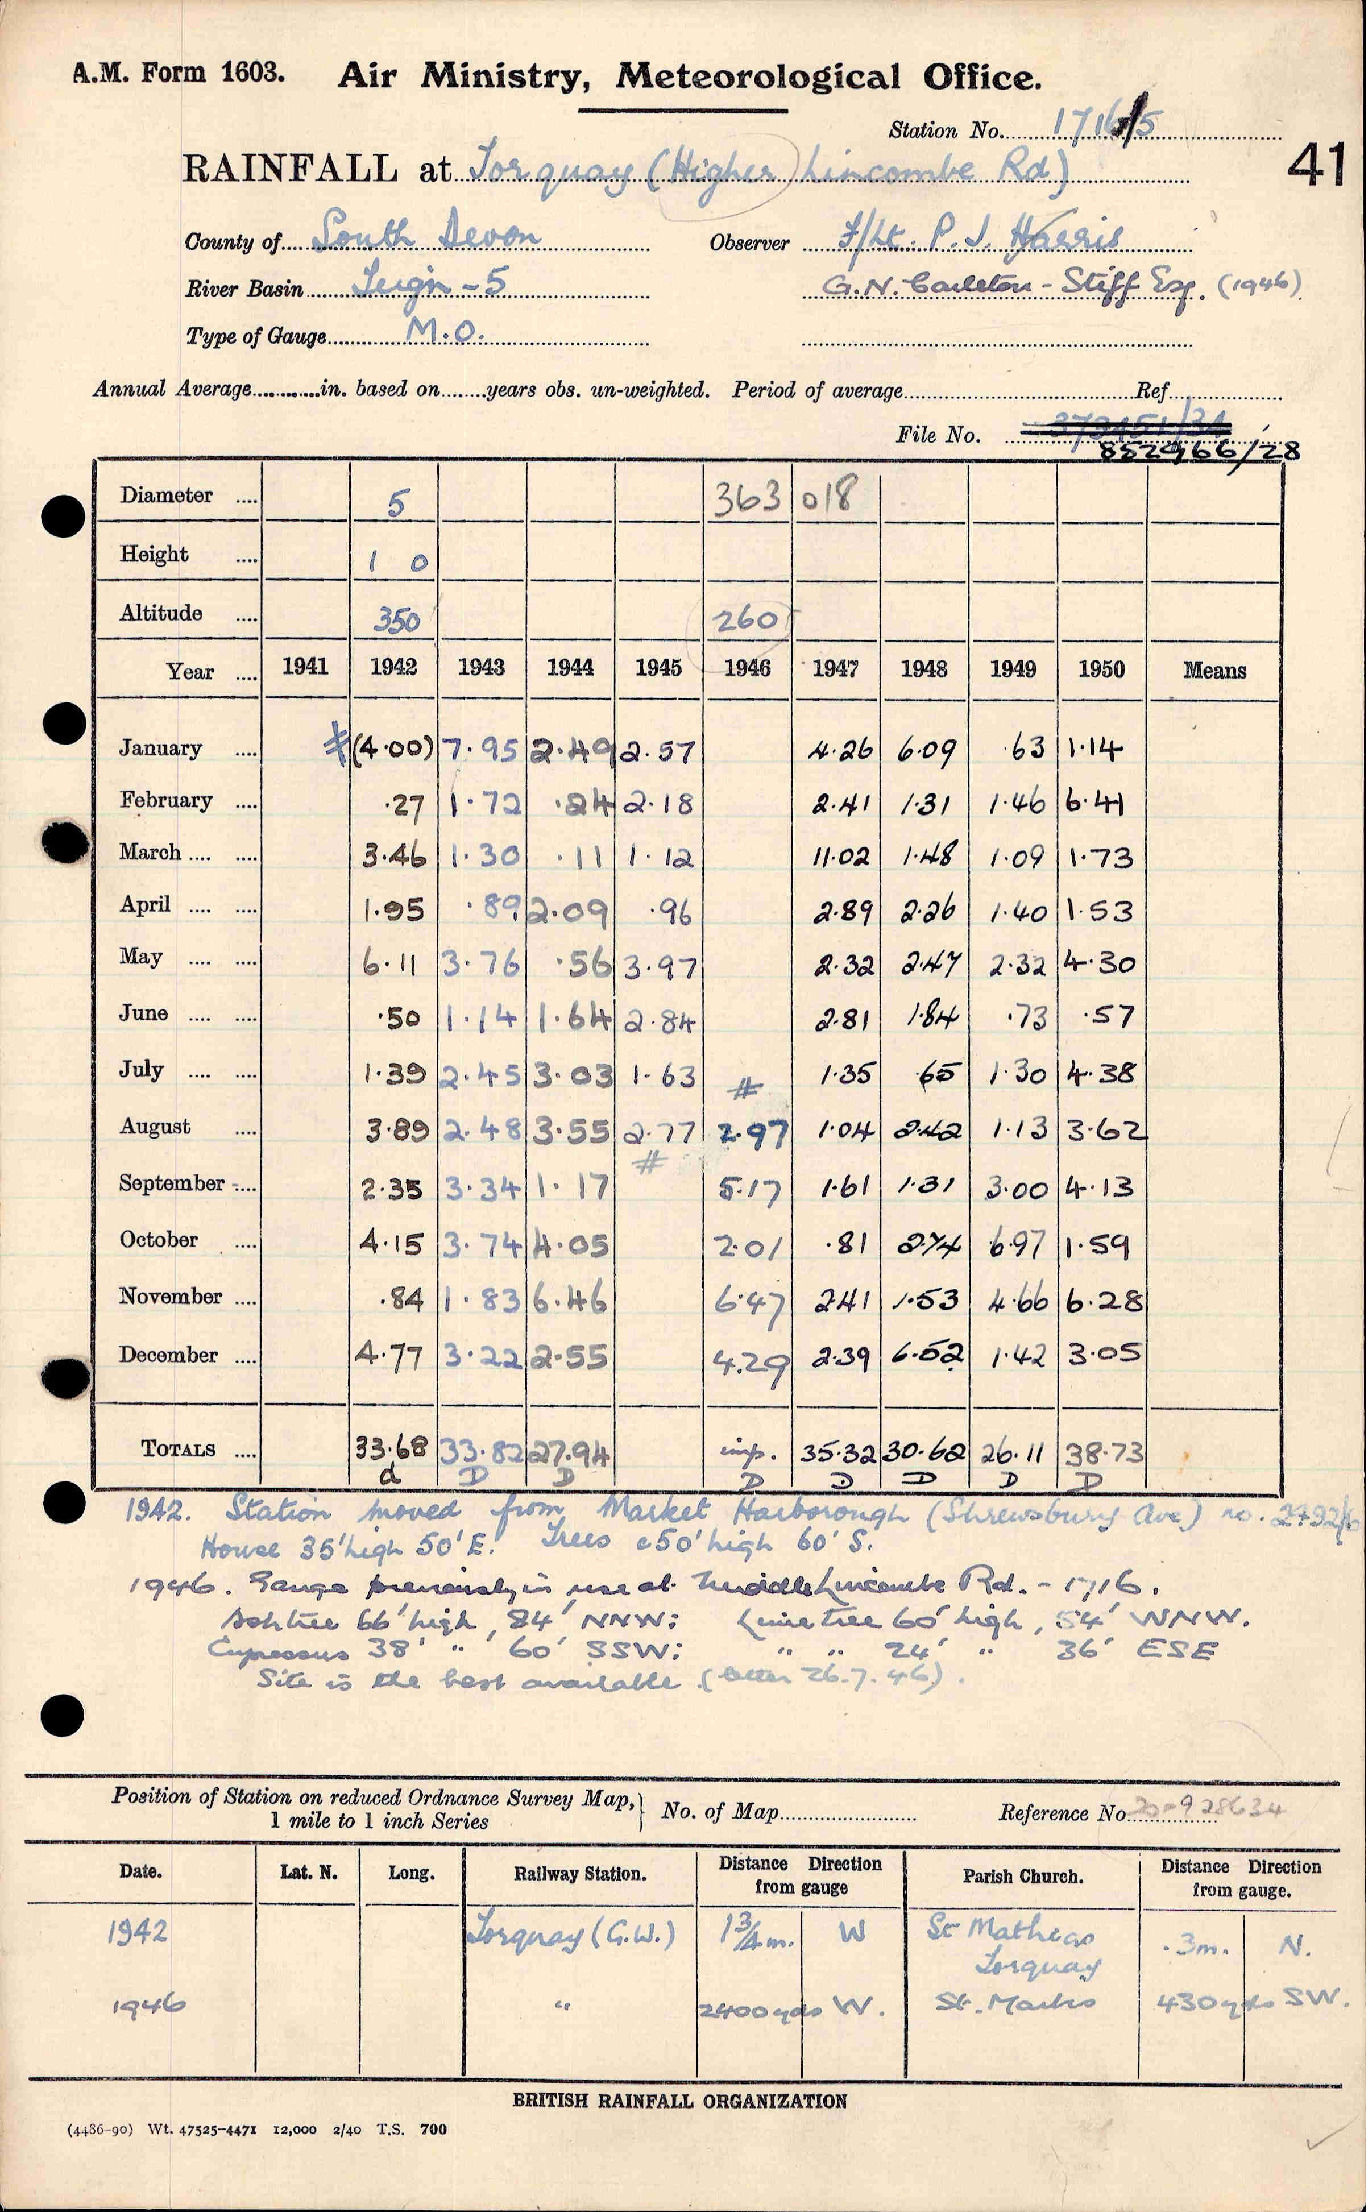 A.M. Form 1603. Air Ministry, Meteorological Office.
Station No. 1716/5
41
RAINFALL at Torquay (Higher Lincombe Rd)
County of South Devon Observer F/Lt. P. J. Harris
River Basin Teign - 5 G.N. Carleton - Stiff Esq. (1946)
Type of Gauge M.O.
Annual Average in. based on years obs. un-weighted. Period of average Ref
File No. 373451/34
852966/28
Diameter .... 5 363 018
Height .... 1 0
Altitude .... 350 260
Year .... 1941 1942 1943 1944 1945 1946 1947 1948 1949 1950 Means
January .... # (4.00) 7.95 2.49 2.57 4.26 6.09 .63 1.14
February .... .27 1.72 .24 2.18 2.41 1.31 1.46 6.41
March .... .... 3.46 1.30 .11 1.12 11.02 1.48 1.09 1.73
April .... .... 1.95 .89 2.09 .96 2.89 2.26 1.40 1.53
May .... .... 6.11 3.76 .56 3.97 2.32 2.47 2.32 4.30
June .... .... .50 1.14 1.64 2.84 2.81 1.84 .73 .57
July .... .... 1.39 2.45 3.03 1.63 # 1.35 .65 1.30 4.38
August .... 3.89 2.48 3.55 2.77 2.97 1.04 2.42 1.13 3.62
September .... 2.35 3.34 1.17 # 5.17 1.61 1.31 3.00 4.13
October .... 4.15 3.74 4.05 2.01 .81 2.74 6.97 1.59
November .... .84 1.83 6.46 6.47 2.41 1.53 4.66 6.28
December .... 4.77 3.22 2.55 4.29 2.39 6.52 1.42 3.05
TOTALS .... 33.68 33.82 27.94 imp. 35.32 30.62 26.11 38.73
d D D D D D D D
1942. Station moved from Market Harborough (Shrewsbury Ave) no.
House 35' high 50' E. Trees c50' high 60' S.
1946. Gauge previously in use at Middle Lincombe Rd. - 1716.
Ash tree 66' high, 84' NNW; Lime tree 60' high, 54' WNW.
Cupressus 38' " 60' SSW; " " 24' " 36' ESE
Site is the best available. (letter 26.7.46).
Position of Station on reduced Ordnance Survey Map, } No. of Map Reference No. 20-928634
1 mile to 1 inch Series
Date. Lat. N. Long. Railway Station. Distance Direction from gauge Parish Church. Distance Direction from gauge.
1942 Torquay (G.W.) 1 3/4 m. W St Mathias Torquay .3m. N.
1946 " 2400 yds W. St. Marks 430 yds SW.
BRITISH RAINFALL ORGANIZATION
(4486-90) Wt. 47525-4471 12,000 2/40 T.S. 700